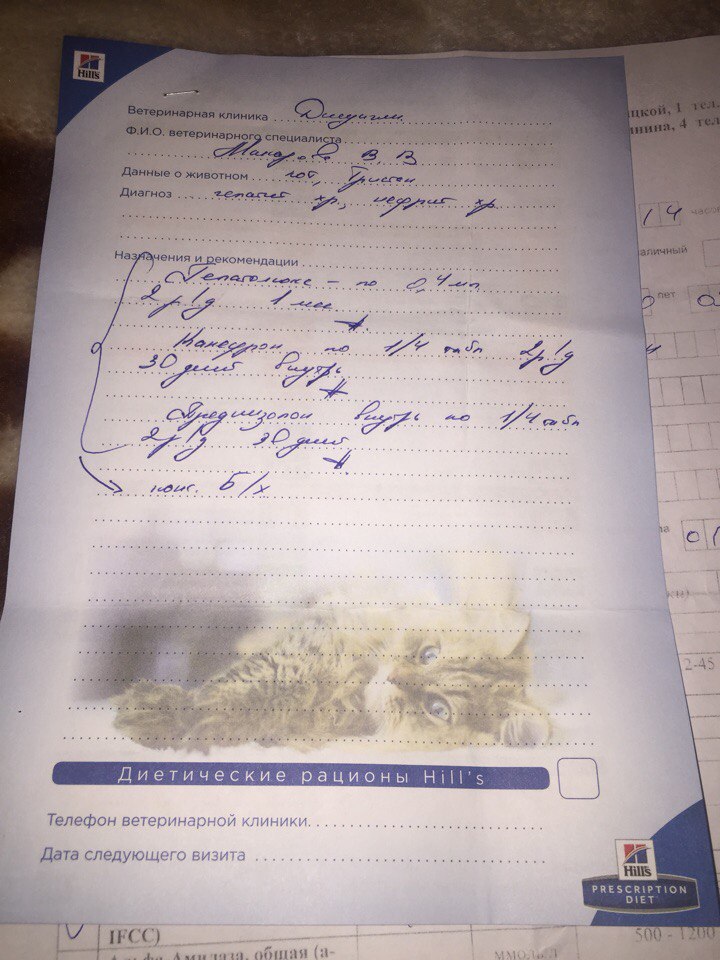 Hill's
Ветеринарная клиника
Ф.И.О. ветеринарного специалиста
Макарова В.В
Данные о животном кот, Тристан
Диагноз гепатит хр, нефрит хр
Назначения и рекомендации
Гепатолюкс - по 0,4 мл
2 р/д 1 мес
Канефрон по 1/4 табл 2р/д
30 дней внутрь
Преднизолон внутрь по 1/4 табл
2р/д 30 дней
Б/х
Диетические рационы Hill's
Телефон ветеринарной клиники
Дата следующего визита
Hill's
PRESCRIPTION
DIET
цкой, 1 тел
нина, 4 тел
14 часо
аличный
лет
2-45
IFCC)
Альфа-Амилаза, общая (а-
ммоль/л
500 - 1200